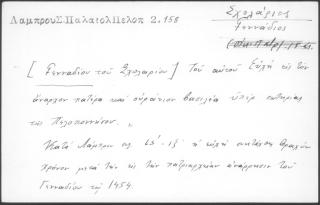 ΛαμπρουΣ.ΠαλαιολΠελοπ 2.158
Σχολάριος
Γεννάδιος
[ Γενναδίου τοῦ Σχολαρίου ] Τοῦ αὐτοῦ Εὐχὴ εἰς τὸν
ἄναρχον πατέρα καὶ οὐράνιον βασιλέα ὑπὲρ σωτηρίας
τῆς Πελοποννήσου.
Κατὰ Λάμπρον σς. ἡ εὐχὴ συνετάχθη βραχὺν
χρόνον μετὰ τὴν εἰς τὸν πατριαρχεῖον ἀνάρρησιν τοῦ
Γενναδίου τῷ 1454.